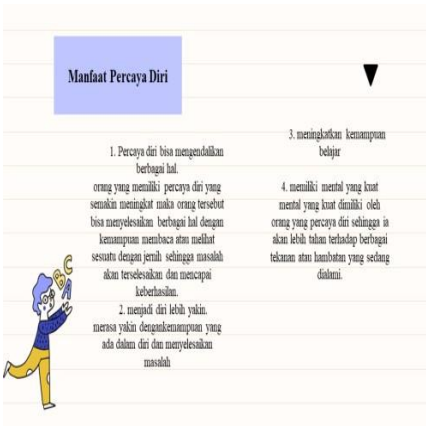 Manfaat Percaya Diri
1. Percaya diri bisa mengendalikan
berbagai hal.
orang yang memiliki percaya diri yang
semakin meningkat maka orang tersebut
bisa menyelesaikan berbagai hal dengan
kemampuan membaca atau melihat
sesuatu dengan jernih sehingga masalah
akan terselesaikan dan mencapai
keberhasilan.
2. menjadi diri lebih yakin.
merasa yakin dengankemampuan yang
ada dalam diri dan menyelesaikan
masalah
3. meningkatkan kemampuan
belajar
4. memiliki mental yang kuat
mental yang kuat dimiliki oleh
orang yang percaya diri sehingga ia
akan lebih tahan terhadap berbagai
tekanan atau hambatan yang sedang
dialami.
B C
A